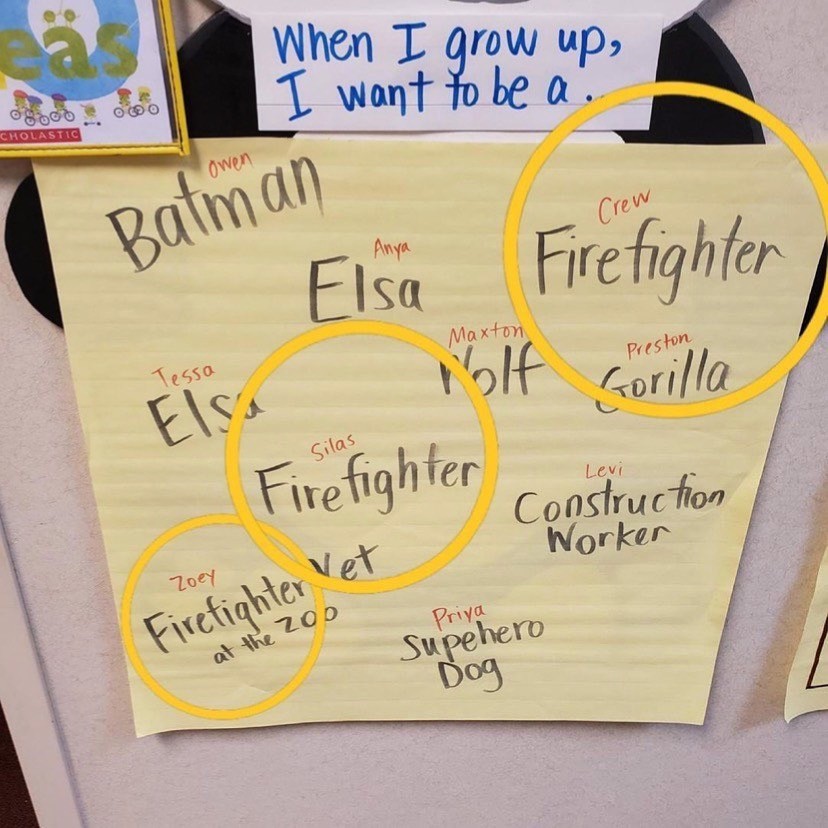 eas
SCHOLASTIC
When I grow up,
I want to be a...
Owen
Batman
Anya
Elsa
Crew
Firefighter
Maxton
Wolf
Preston
Gorilla
Tessa
Elsa
Silas
Firefighter
Levi
Construction
Worker
Vet
Zoey
Firefighter
at the zoo
Priya
Supehero
Dog